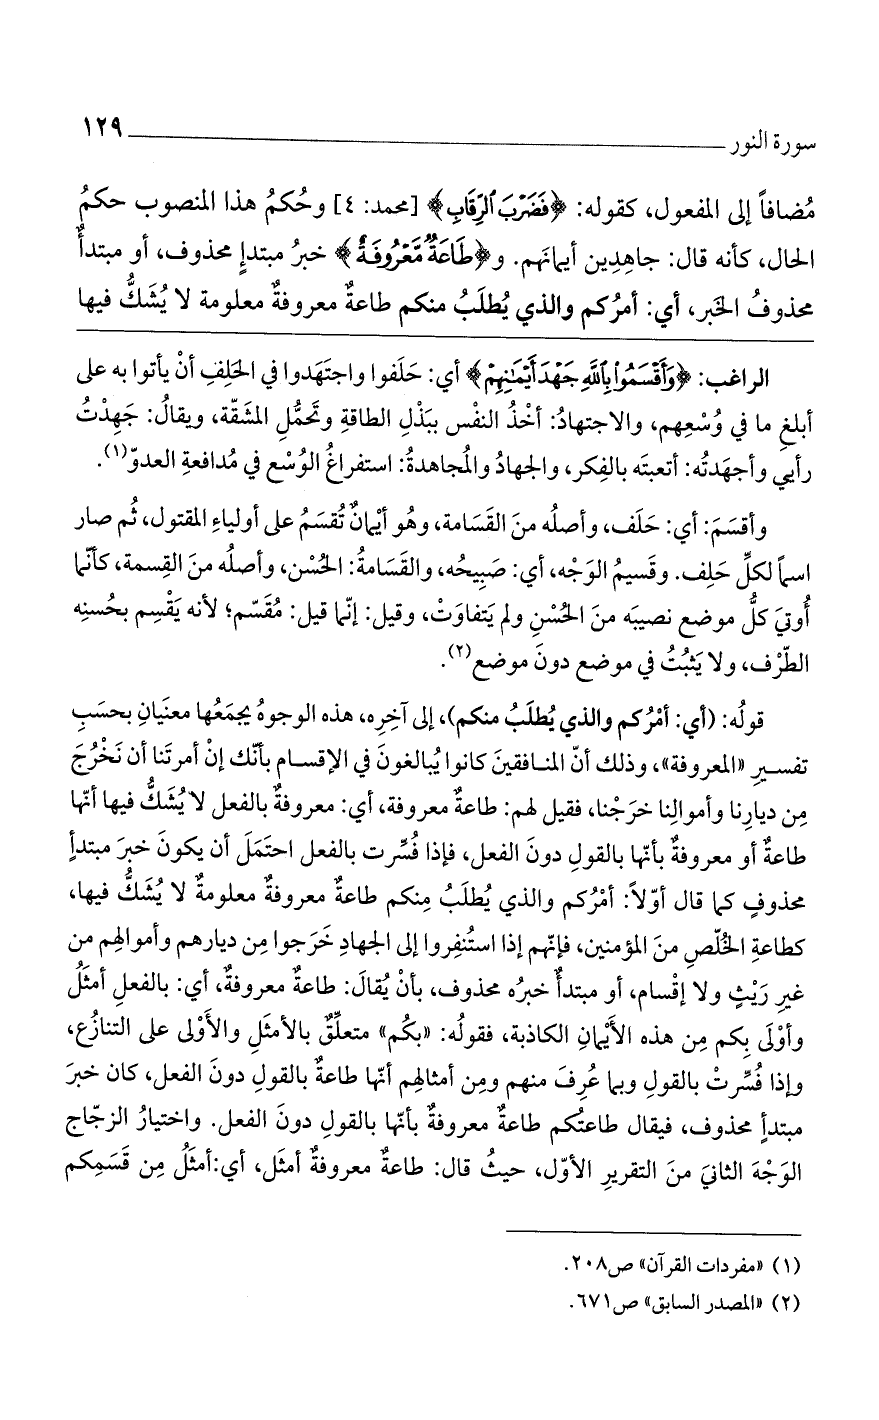 سورة النور ١٢٩
مُضافاً إلى المفعول، كقوله: ﴿فَضَرْبَ ٱلرِّقَابِ﴾ [محمد: ٤] وحُكمُ هذا المنصوب حكمُ
الحال، كأنه قال: جاهِدِين أيمانَهم. و﴿طَاعَةٌ مَّعْرُوفَةٌ﴾ خبرُ مبتدإٍ محذوف، أو مبتدأٌ
محذوفُ الخَبر، أي: أمرُكم والذي يُطلَبُ منكم طاعةٌ معروفةٌ معلومة لا يُشَكُّ فيها
الراغب: ﴿وَأَقْسَمُوا۟ بِٱللَّهِ جَهْدَ أَيْمَٰنِهِمْ﴾ أي: حَلَفوا واجتَهَدوا في الحَلِفِ أنْ يأتوا به على
أبلغِ ما في وُسْعِهم، والاجتهادُ: أخْذُ النفْسِ ببَذْلِ الطاقةِ وتَحمُّلِ المشَقّة، ويقالُ: جَهِدْتُ
رأيي وأجهَدتُه: أتعبتَه بالفِكر، والجهادُ والمُجاهدةُ: استفراغُ الوُسْع في مُدافعةِ العدوّ(١).
وأقسَمَ: أي: حَلَف، وأصلُه منَ القَسَامة، وهُو أيْمانٌ تُقسَمُ على أولياءِ المقتول، ثُم صار
اسماً لكلِّ حَلِف. وقَسيمُ الوَجْه، أي: صَبِيحُه، والقَسَامةُ: الحُسْن، وأصلُه منَ القِسمة، كأنّما
أُوتيَ كلُّ موضع نصيبَه منَ الحُسْنِ ولم يَتفاوَتْ، وقيل: إنّما قيل: مُقَسّم؛ لأنه يَقْسِم بحُسنِه
الطّرْف، ولا يَثبُتُ في موضع دونَ موضع(٢).
قولُه: (أي: أمْرُكم والذي يُطلَبُ منكم)، إلى آخِرِه، هذه الوجوهُ يجمَعُها معنَيانِ بحسَبِ
تفسيرِ «المعروفة»، وذلك أنّ المنافقينَ كانوا يُبالغونَ في الإقسام بأنّك إنْ أمرتَنا أن نَخْرُجَ
مِن ديارِنا وأموالِنا خرَجْنا، فقيل لهم: طاعةٌ معروفة، أي: معروفةٌ بالفعل لا يُشَكُّ فيها أنّها
طاعةٌ أو معروفةٌ بأنّها بالقولِ دونَ الفعل، فإذا فُسِّرت بالفعل احتمَلَ أن يكونَ خبرَ مبتدأٍ
محذوفٍ كما قال أوّلاً: أمْرُكم والذي يُطلَبُ مِنكم طاعةٌ معروفةٌ معلومةٌ لا يُشَكُّ فيها،
كطاعةِ الخُلّصِ منَ المؤمنين، فإنّهم إذا استُنفِروا إلى الجهادِ خَرَجوا مِن ديارهم وأموالهِم من
غيرِ رَيْثٍ ولا إقْسام، أو مبتدأٌ خبرُه محذوف، بأنْ يُقالَ: طاعةٌ معروفةٌ، أي: بالفعلِ أمثَلُ
وأوْلَى بِكم مِن هذه الأَيْمانِ الكاذبة، فقولُه: «بكُم» متعلِّقٌ بالأمثَلِ والأَوْلى على التنازُع،
وإذا فُسِّرتْ بالقولِ وبما عُرِفَ منهم ومِن أمثالهِم أنّها طاعةٌ بالقولِ دونَ الفعل، كان خبرَ
مبتدأٍ محذوف، فيقال طاعتُكم طاعةٌ معروفةٌ بأنّها بالقولِ دونَ الفعل. واختيارُ الزجّاج
الوَجْهَ الثانيَ منَ التقريرِ الأوّل، حيثُ قال: طاعةٌ معروفةٌ أمثَل، أي:أمثَلُ مِن قَسَمِكم
(١) «مفردات القرآن» ص٢٠٨.
(٢) «المصدر السابق» ص٦٧١.